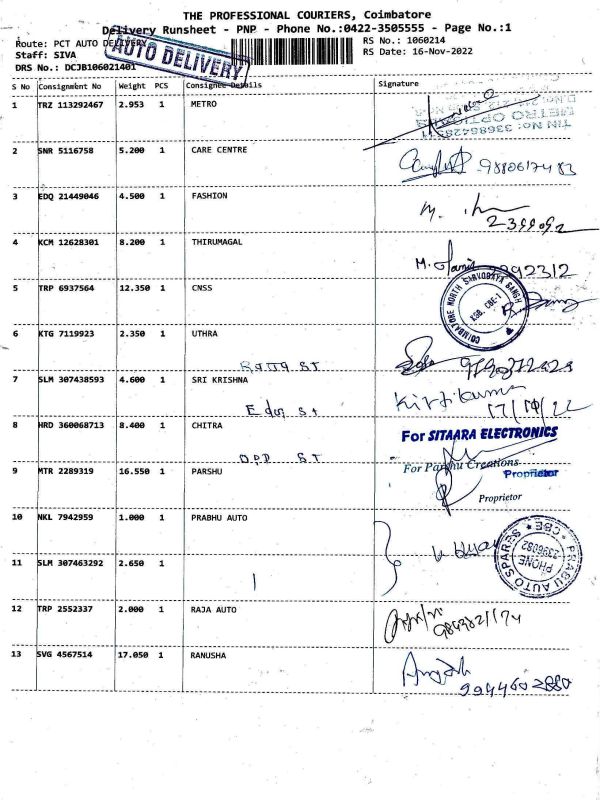 THE PROFESSIONAL COURIERS, Coimbatore
Delivery Runsheet - PNP - Phone No.:0422-3505555 - Page No.:1
Route: PCT AUTO DELIVERY
RS No.: 1060214
Staff: SIVA
RS Date: 16-Nov-2022
DRS No.: DCJB106021401
AUTO DELIVERY
S No Consignment No Weight PCS Consignee Details Signature
1 TRZ 113292467 2.953 1 METRO
METRO OPTICALS
TIN No: 33686428
2 SNR 5116758 5.200 1 CARE CENTRE
9880617483
3 EDQ 21449046 4.500 1 FASHION
M.
2399092
4 KCM 12628301 8.200 1 THIRUMAGAL
M.
5 TRP 6937564 12.350 1 CNSS
COIMBATORE NORTH SARVODAYA SANGH
KSB, CBE-1
6 KTG 7119923 2.350 1 UTHRA
St
7 SLM 307438593 4.600 1 SRI KRISHNA
Kirtikumar
St
8 HRD 360068713 8.400 1 CHITRA
For SITAARA ELECTRONICS
Proprietor
OPP ST
9 MTR 2289319 16.550 1 PARSHU
For Parshu Creations
Proprietor
10 NKL 7942959 1.000 1 PRABHU AUTO
PRABU AUTO SPARES
CBE
PHONE
2396082
11 SLM 307463292 2.650 1
12 TRP 2552337 2.000 1 RAJA AUTO
13 SVG 4567514 17.050 1 RANUSHA
9944602880